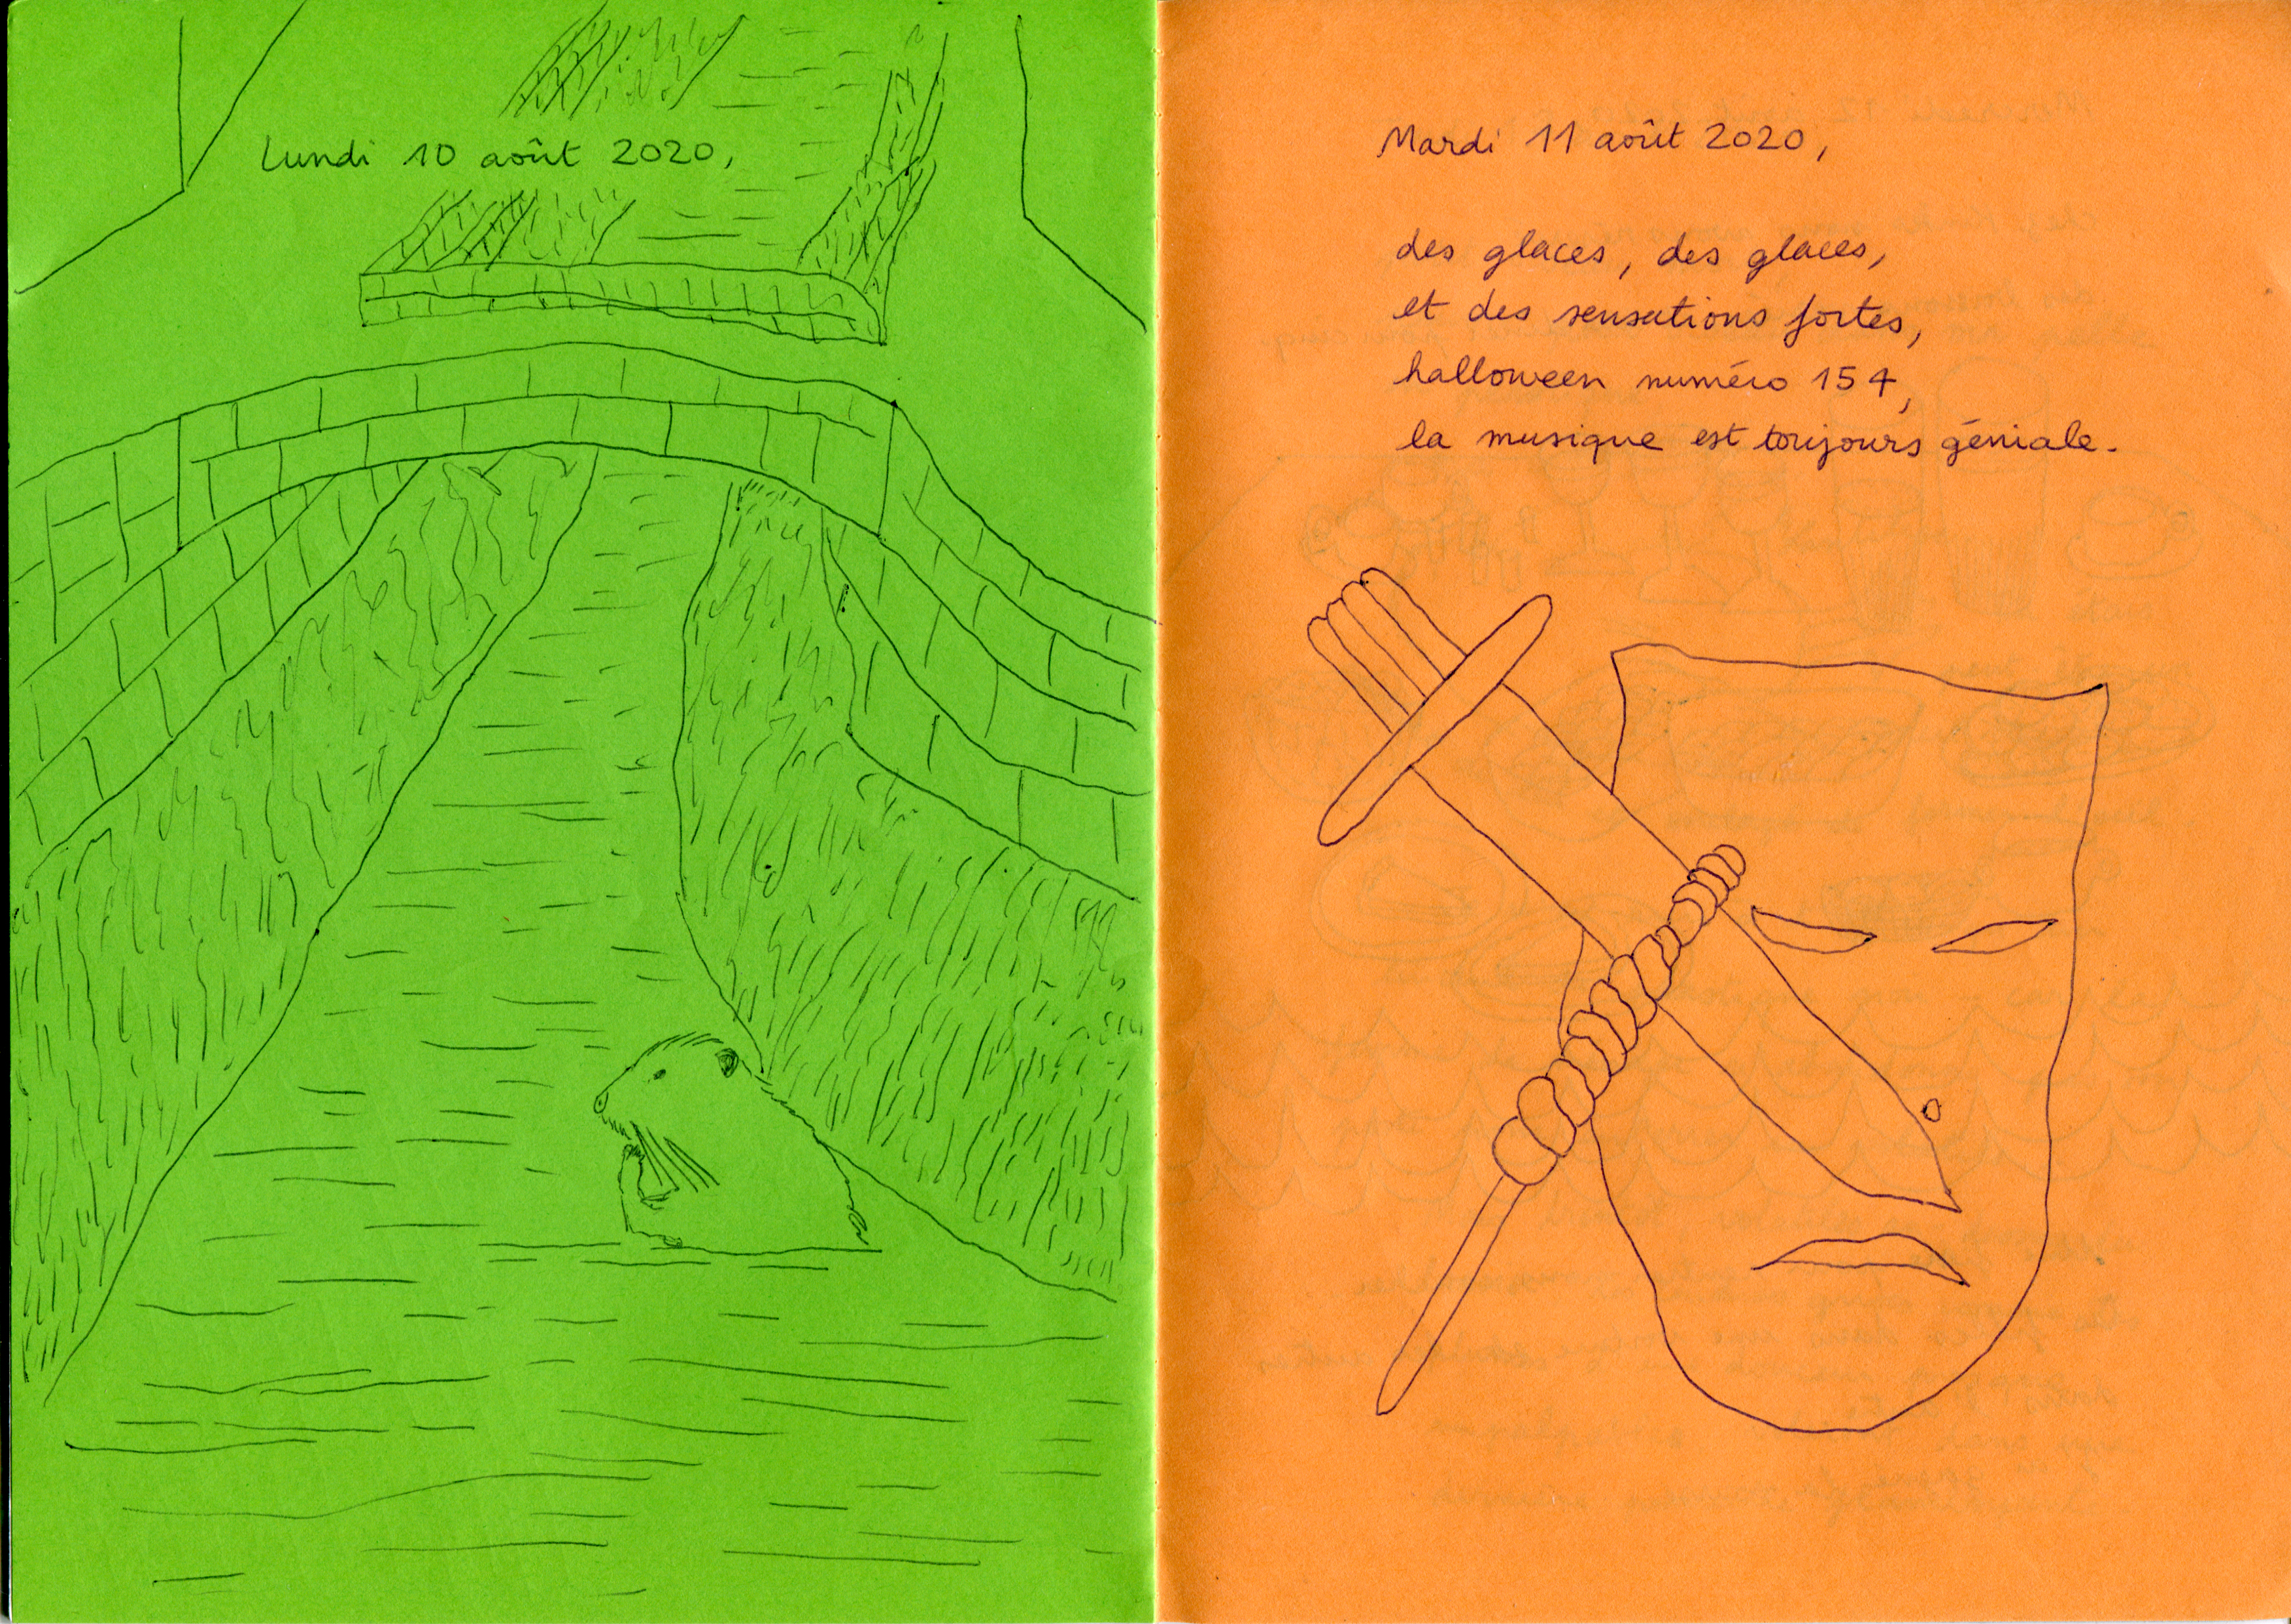 Lundi 10 août 2020,
Mardi 11 août 2020,
des glaces, des glaces,
et des sensations fortes,
halloween numéro 154,
la musique est toujours géniale.